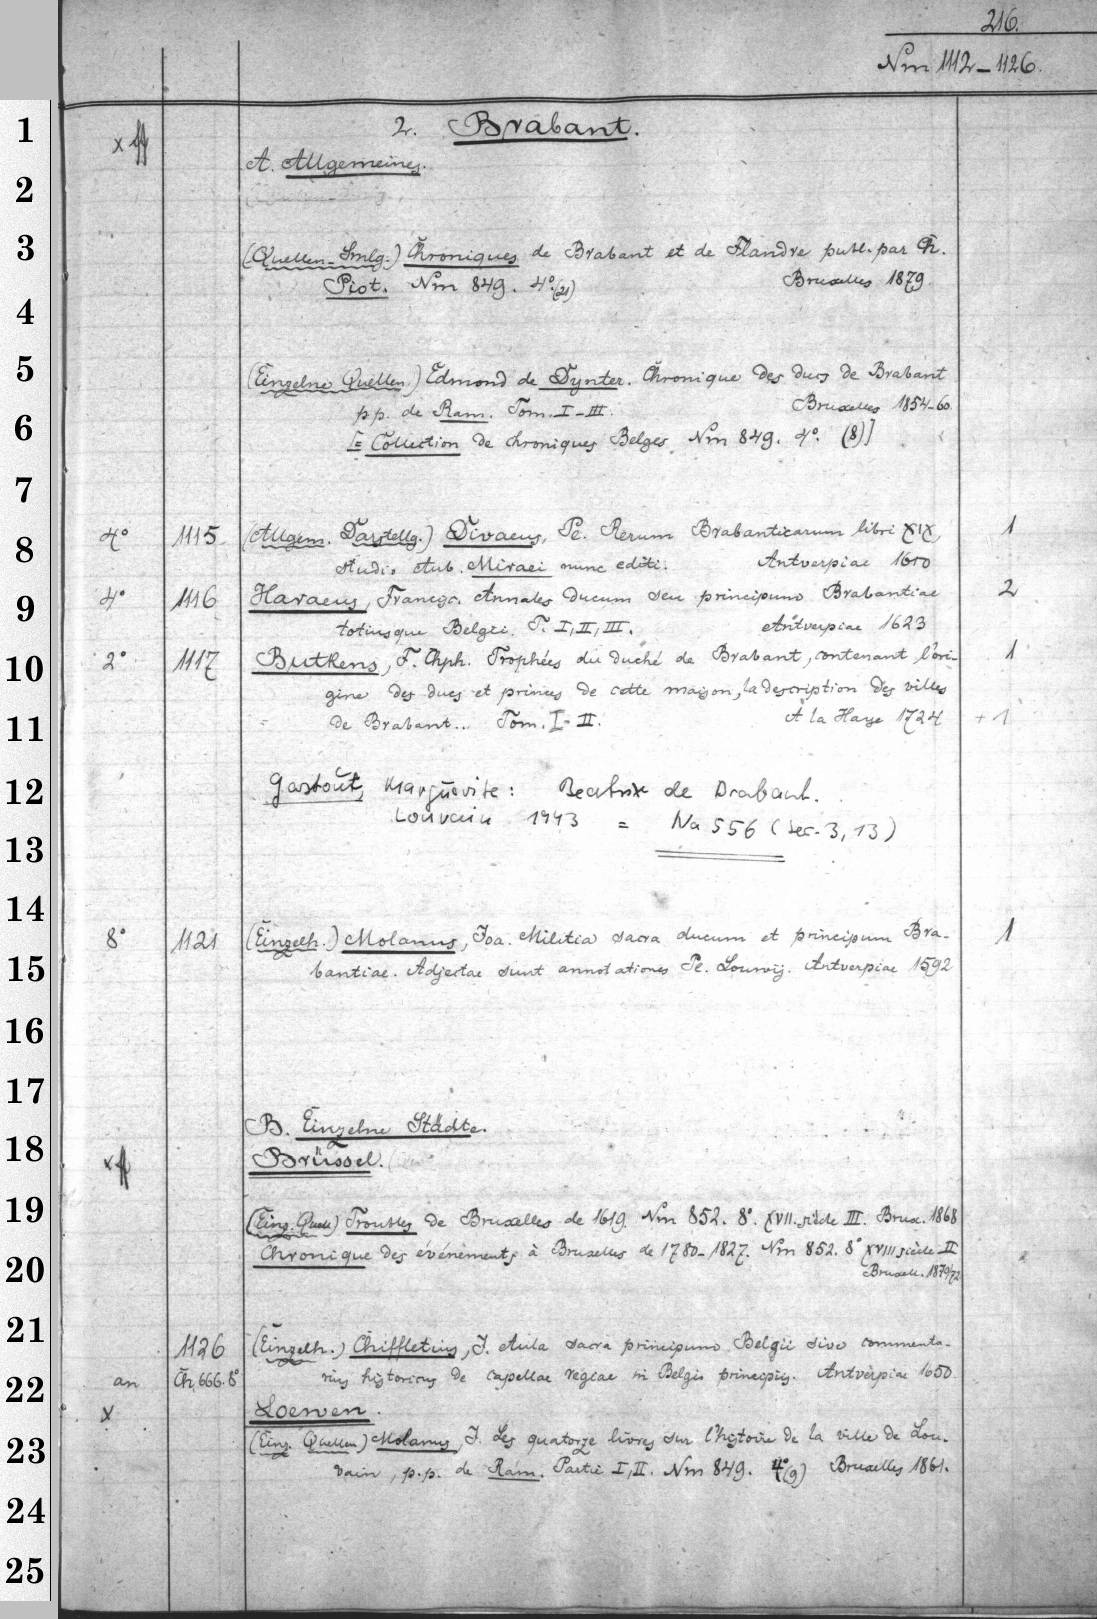 216.
Nm 1112-1126.
1 2. Brabant.
x ff
A. Allgemeines.
2
3 (Quellen-Smlg.) Chroniques de Brabant et de Flandre publ. par Ch.
Piot. Nm 849. 4°.(21) Bruxelles 1879.
4
5 (Einzelne Quellen) Edmond de Dynter. Chronique des ducs de Brabant
p.p. de Ram. Tom. I-III. Bruxelles 1854-60.
6 [= Collection de chroniques Belges Nm 849. 4°. (8)]
7
4° 1115 (Allgem. Darstellg.) Divaeus, Pe. Rerum Brabanticarum libri XIX, 1
8 studio Aub. Miraei nunc editi. Antverpiae 1610
9 4° 1116 Haraeus, Francsc. Annales ducum seu principum Brabantiae 2
totiusque Belgii. T. I, II, III. Antverpiae 1623
10 2° 1117 Butkens, F. Chph. Trophées du duché de Brabant, contenant l'ori- 1
gine des ducs et princes de cette maison, la description des villes
11 de Brabant... Tom. I-II. A la Haye 1724 + 1
12 Gastout, Marguerite: Beatrix de Brabant.
Louvain 1943 = Na 556 (Ser. 3, 13)
13
14
8° 1121 (Einzelh.) Molanus, Joa. Militia sacra ducum et principum Bra- 1
15 bantiae. Adjectae sunt annotationes Pe. Louwij. Antverpiae 1592
16
17
B. Einzelne Städte.
18 Brüssel.
x ff
19 (Einz. Quell) Troubles de Bruxelles de 1619. Nm 852. 8°. XVII. siècle III. Brux. 1868
Chronique des événements à Bruxelles de 1780-1827. Nm 852. 8° XVIII siècle II
20 Bruxell. 1870/72
21 1126 (Einzelh.) Chiffletius, J. Aula sacra principum Belgii sive commenta-
22 an Ch. 666. 8° rius historicus de capellae regiae in Belgio principiis. Antverpiae 1650
x Loewen.
23 (Einz. Quellen) Molanus, J. Les quatorze livres sur l'histoire de la ville de Lou-
vain, p.p. de Ram. Partie I, II. Nm 849. 4°(9) Bruxelles 1861.
24
25